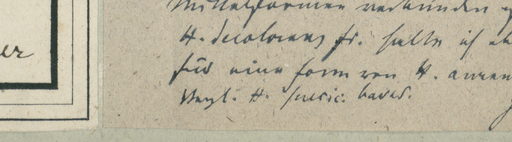 Mittelformen verbunden
H. decolorans fr. halte ich
für eine form von H. auran
Vergl. H. suecic. bavar.
er